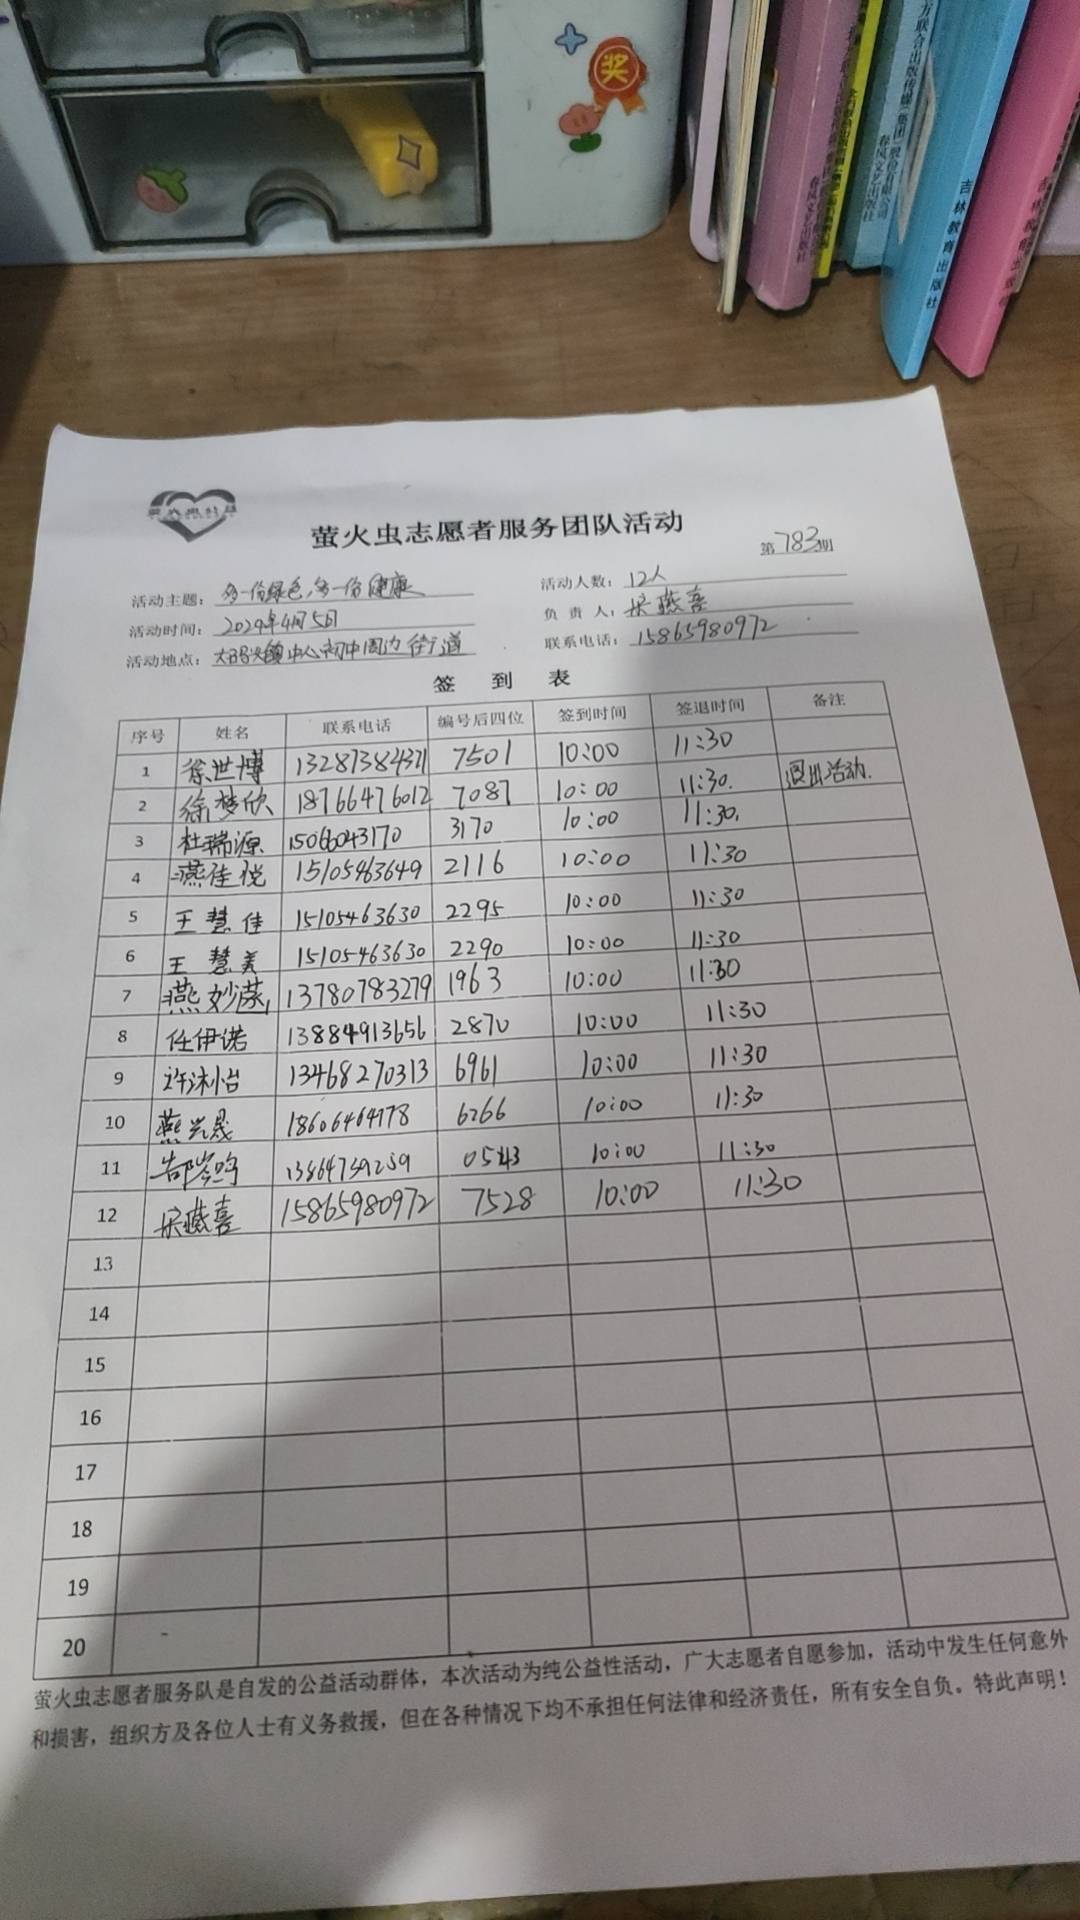 奖
方联合出版传媒(集团)股份有限公司
春风文艺出版社
春风文艺出版社
吉林教育出版社
萤火虫志愿者服务团队活动
第783期
活动主题: 多一份绿色,多一份健康 活动人数: 12人
活动时间: 2024年4月5日 负责人: 宋燕喜
活动地点: 大码头镇中心初中周边街道 联系电话: 15865980972
签 到 表
序号 姓名 联系电话 编号后四位 签到时间 签退时间 备注
1 徐世博 13287384321 7501 10:00 11:30
2 徐梦欣 18766476012 7087 10:00 11:30. 退出活动.
3 杜瑞源 15066043170 3170 10:00 11:30.
4 燕佳悦 15105463649 2116 10:00 11:30
5 王慧佳 15105463630 2295 10:00 11:30
6 王慧美 15105463630 2290 10:00 11:30
7 燕妙菡 13780783279 1963 10:00 11:30
8 任伊诺 13884913656 2870 10:00 11:30
9 许沐怡 13468270313 6961 10:00 11:30
10 燕兴晟 18606464778 6266 10:00 11:30
11 13864739259 0543 10:00 11:30
12 宋燕喜 15865980972 7528 10:00 11:30
13
14
15
16
17
18
19
20
萤火虫志愿者服务队是自发的公益活动群体，本次活动为纯公益性活动，广大志愿者自愿参加，活动中发生任何意外
和损害，组织方及各位人士有义务救援，但在各种情况下均不承担任何法律和经济责任，所有安全自负。特此声明！